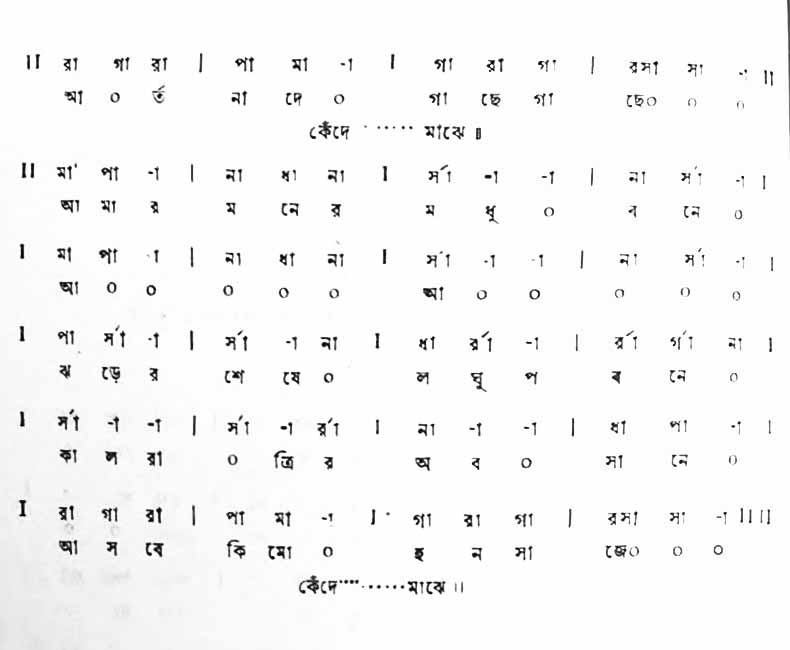 II রা গা রা | পা মা -া I গা রা গা | রসা সা -া II
আ ০ র্ত না দে ০ গা ছে গা ছে০ ০ ০
কেঁদে ...... মাঝে ॥
II মা পা -া | না ধা না I র্সা -া -া | না র্সা -া I
আ মা র ম নে র ম ধু ০ ব নে ০
I মা পা -া | না ধা না I র্সা -া -া | না র্সা -া I
আ ০ ০ ০ ০ ০ আ ০ ০ ০ ০ ০
I পা র্সা -া | র্সা -া না I ধা র্রা -া | র্রা র্গা না I
ঝ ড়ে র শে ষে ০ ল ঘু প ব নে ০
I র্সা -া -া | র্সা -া র্রা I না -া -া | ধা পা -া I
কা ল রা ০ ত্রি র অ ব ০ সা নে ০
I রা গা রা | পা মা -া I গা রা গা | রসা সা -া II II
আ স বে কি মো ০ হ ন সা জে০ ০ ০
কেঁদে..........মাঝে ॥